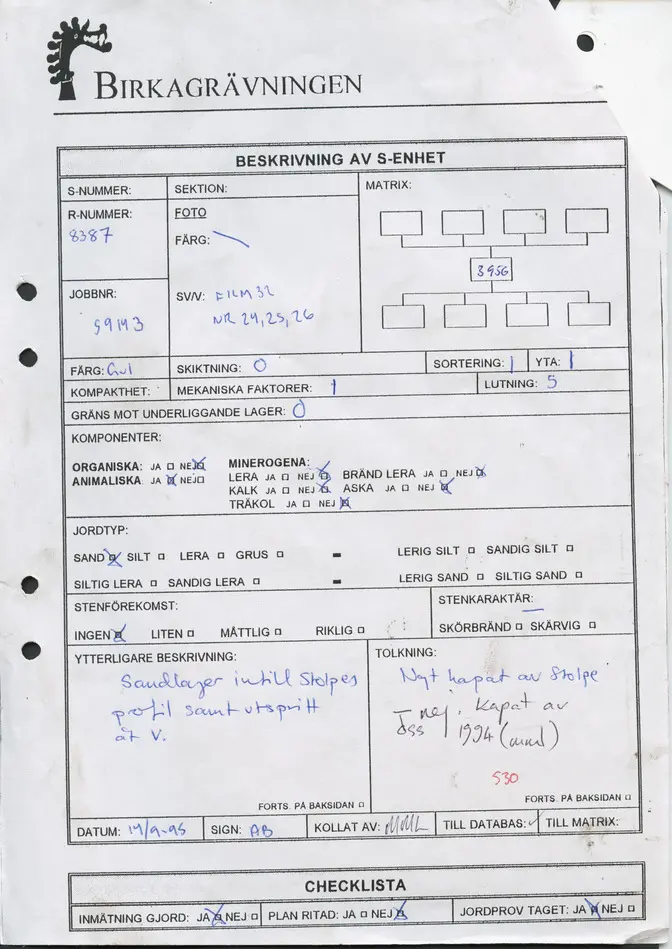 BIRKAGRÄVNINGEN
BESKRIVNING AV S-ENHET
S-NUMMER:
SEKTION:
MATRIX:
R-NUMMER:
8387
FOTO
FÄRG:
3956
JOBBNR:
59143
SV/V: FILM 32
NR 24, 25, 26
FÄRG: Gul
SKIKTNING: 0
SORTERING: 1
YTA: 1
KOMPAKTHET:
MEKANISKA FAKTORER: 1
LUTNING: 5
GRÄNS MOT UNDERLIGGANDE LAGER: 0
KOMPONENTER:
ORGANISKA: JA □ NEJ ☒
ANIMALISKA: JA ☒ NEJ □
MINEROGENA:
LERA JA □ NEJ ☒ BRÄND LERA JA □ NEJ ☒
KALK JA □ NEJ ☒ ASKA JA □ NEJ ☒
TRÄKOL JA □ NEJ ☒
JORDTYP:
SAND ☒ SILT □ LERA □ GRUS □ - LERIG SILT □ SANDIG SILT □
SILTIG LERA □ SANDIG LERA □ - LERIG SAND □ SILTIG SAND □
STENFÖREKOMST:
INGEN ☒ LITEN □ MÅTTLIG □ RIKLIG □
STENKARAKTÄR:
SKÖRBRÄND □ SKÄRVIG □
YTTERLIGARE BESKRIVNING:
Sandlager intill Stolpes
profil samt utspritt
åt V.
FORTS. PÅ BAKSIDAN □
TOLKNING:
Nyt kapat av Stolpe
- nej. Kapat av
oss 1994 (mml)
530
FORTS. PÅ BAKSIDAN □
DATUM: 14/9-95
SIGN: AB
KOLLAT AV: MML
TILL DATABAS: ✓
TILL MATRIX:
CHECKLISTA
INMÄTNING GJORD: JA ☒ NEJ □
PLAN RITAD: JA □ NEJ ☒
JORDPROV TAGET: JA ☒ NEJ □